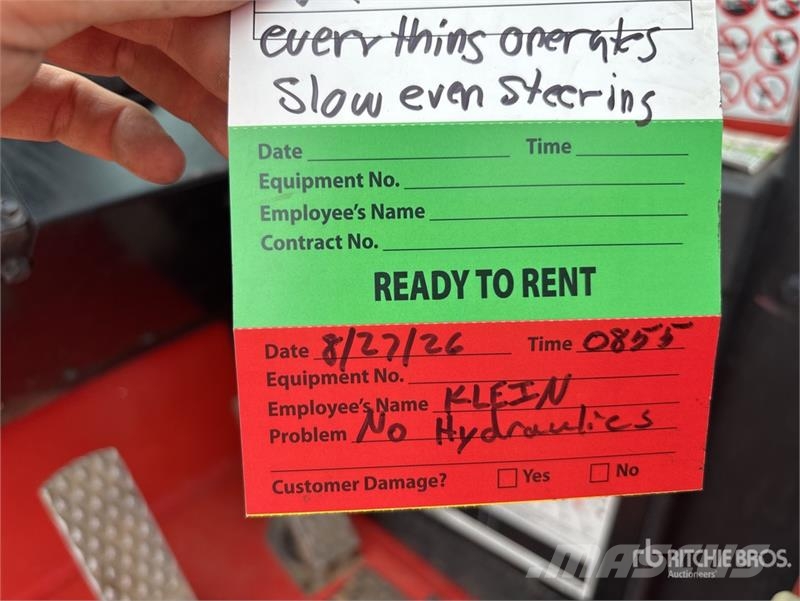 everything operates
Slow even steering
Date Time
Equipment No.
Employee's Name
Contract No.
READY TO RENT
Date 8/27/26 Time 0855
Equipment No.
Employee's Name KLEIN
Problem No Hydraulics
Customer Damage? Yes No
rb RITCHIE BROS.
Auctioneers
MASCUS